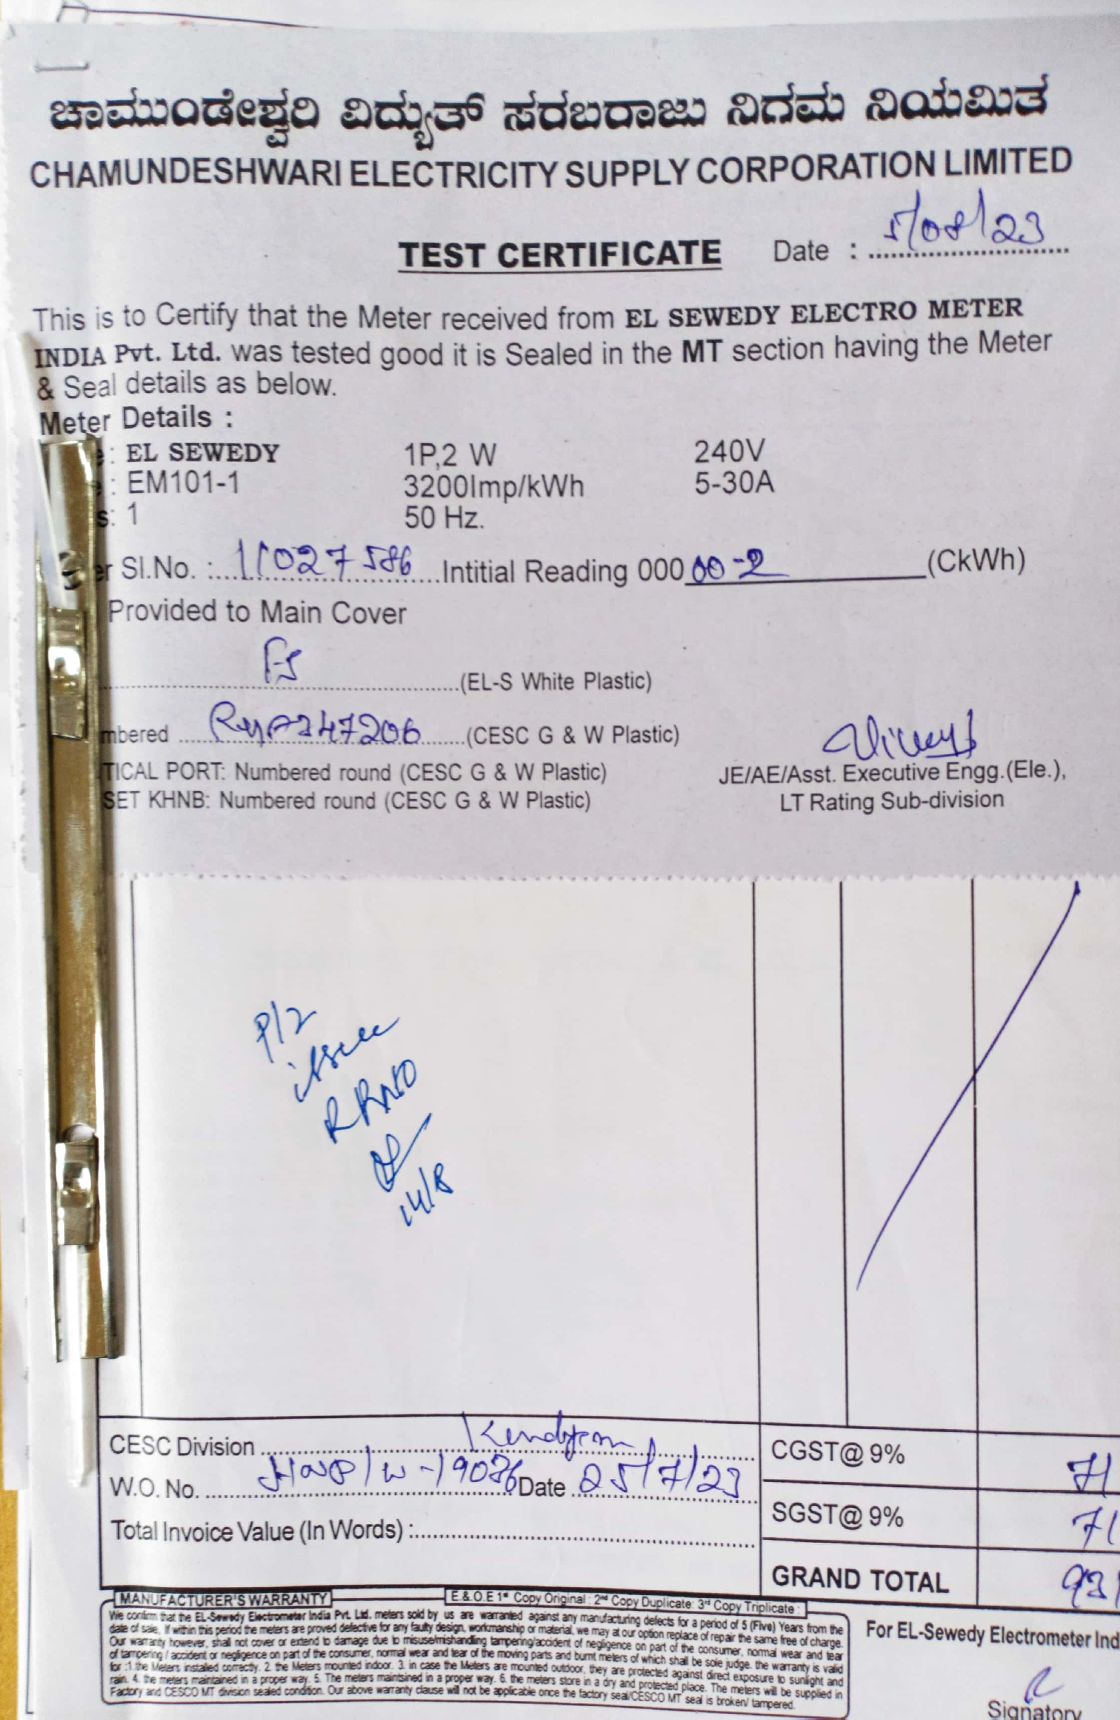 ಚಾಮುಂಡೇಶ್ವರಿ ವಿದ್ಯುತ್ ಸರಬರಾಜು ನಿಗಮ ನಿಯಮಿತ
CHAMUNDESHWARI ELECTRICITY SUPPLY CORPORATION LIMITED
TEST CERTIFICATE Date : 5/08/23
This is to Certify that the Meter received from EL SEWEDY ELECTRO METER
INDIA Pvt. Ltd. was tested good it is Sealed in the MT section having the Meter
& Seal details as below.
Meter Details :
: EL SEWEDY 1P,2 W 240V
: EM101-1 3200Imp/kWh 5-30A
s: 1 50 Hz.
er Sl.No. : 11027586 Intitial Reading 000 00-2 (CkWh)
Provided to Main Cover
(EL-S White Plastic)
mbered (CESC G & W Plastic)
TICAL PORT: Numbered round (CESC G & W Plastic) JE/AE/Asst. Executive Engg.(Ele.),
SET KHNB: Numbered round (CESC G & W Plastic) LT Rating Sub-division
P/2
issue
RRNO
14/8
CESC Division CGST@ 9% 71
W.O. No. Date 25/7/23
SGST@ 9% 71
Total Invoice Value (In Words) :
GRAND TOTAL 931
MANUFACTURER'S WARRANTY E.& O.E 1st Copy Original : 2nd Copy Duplicate: 3rd Copy Triplicate :
We confirm that the EL-Sewedy Electrometer India Pvt. Ltd. meters sold by us are warranted against any manufacturing defects for a period of 5 (Five) Years from the
date of sale. If within this period the meters are proved defective for any faulty design, workmanship or material, we may at our option replace of repair the same free of charge.
Our warranty however, shall not cover or extend to damage due to misuse/mishandling tampering/accident of negligence on part of the consumer, normal wear and tear
of tampering / accident or negligence on part of the consumer, normal wear and tear of the moving parts and burnt meters of which shall be sole judge. the warranty is valid
for :1.the Meters installed correctly. 2. the Meters mounted indoor. 3. in case the Meters are mounted outdoor, they are protected against direct exposure to sunlight and
rain. 4. the meters maintained in a proper way. 5. The meters maintained in a proper way. 6. the meters store in a dry and protected place. The meters will be supplied in
Factory and CESCO MT division sealed condition. Our above warranty clause will not be applicable once the factory seal/CESCO MT seal is broken/ tampered.
For EL-Sewedy Electrometer Ind
Signatory